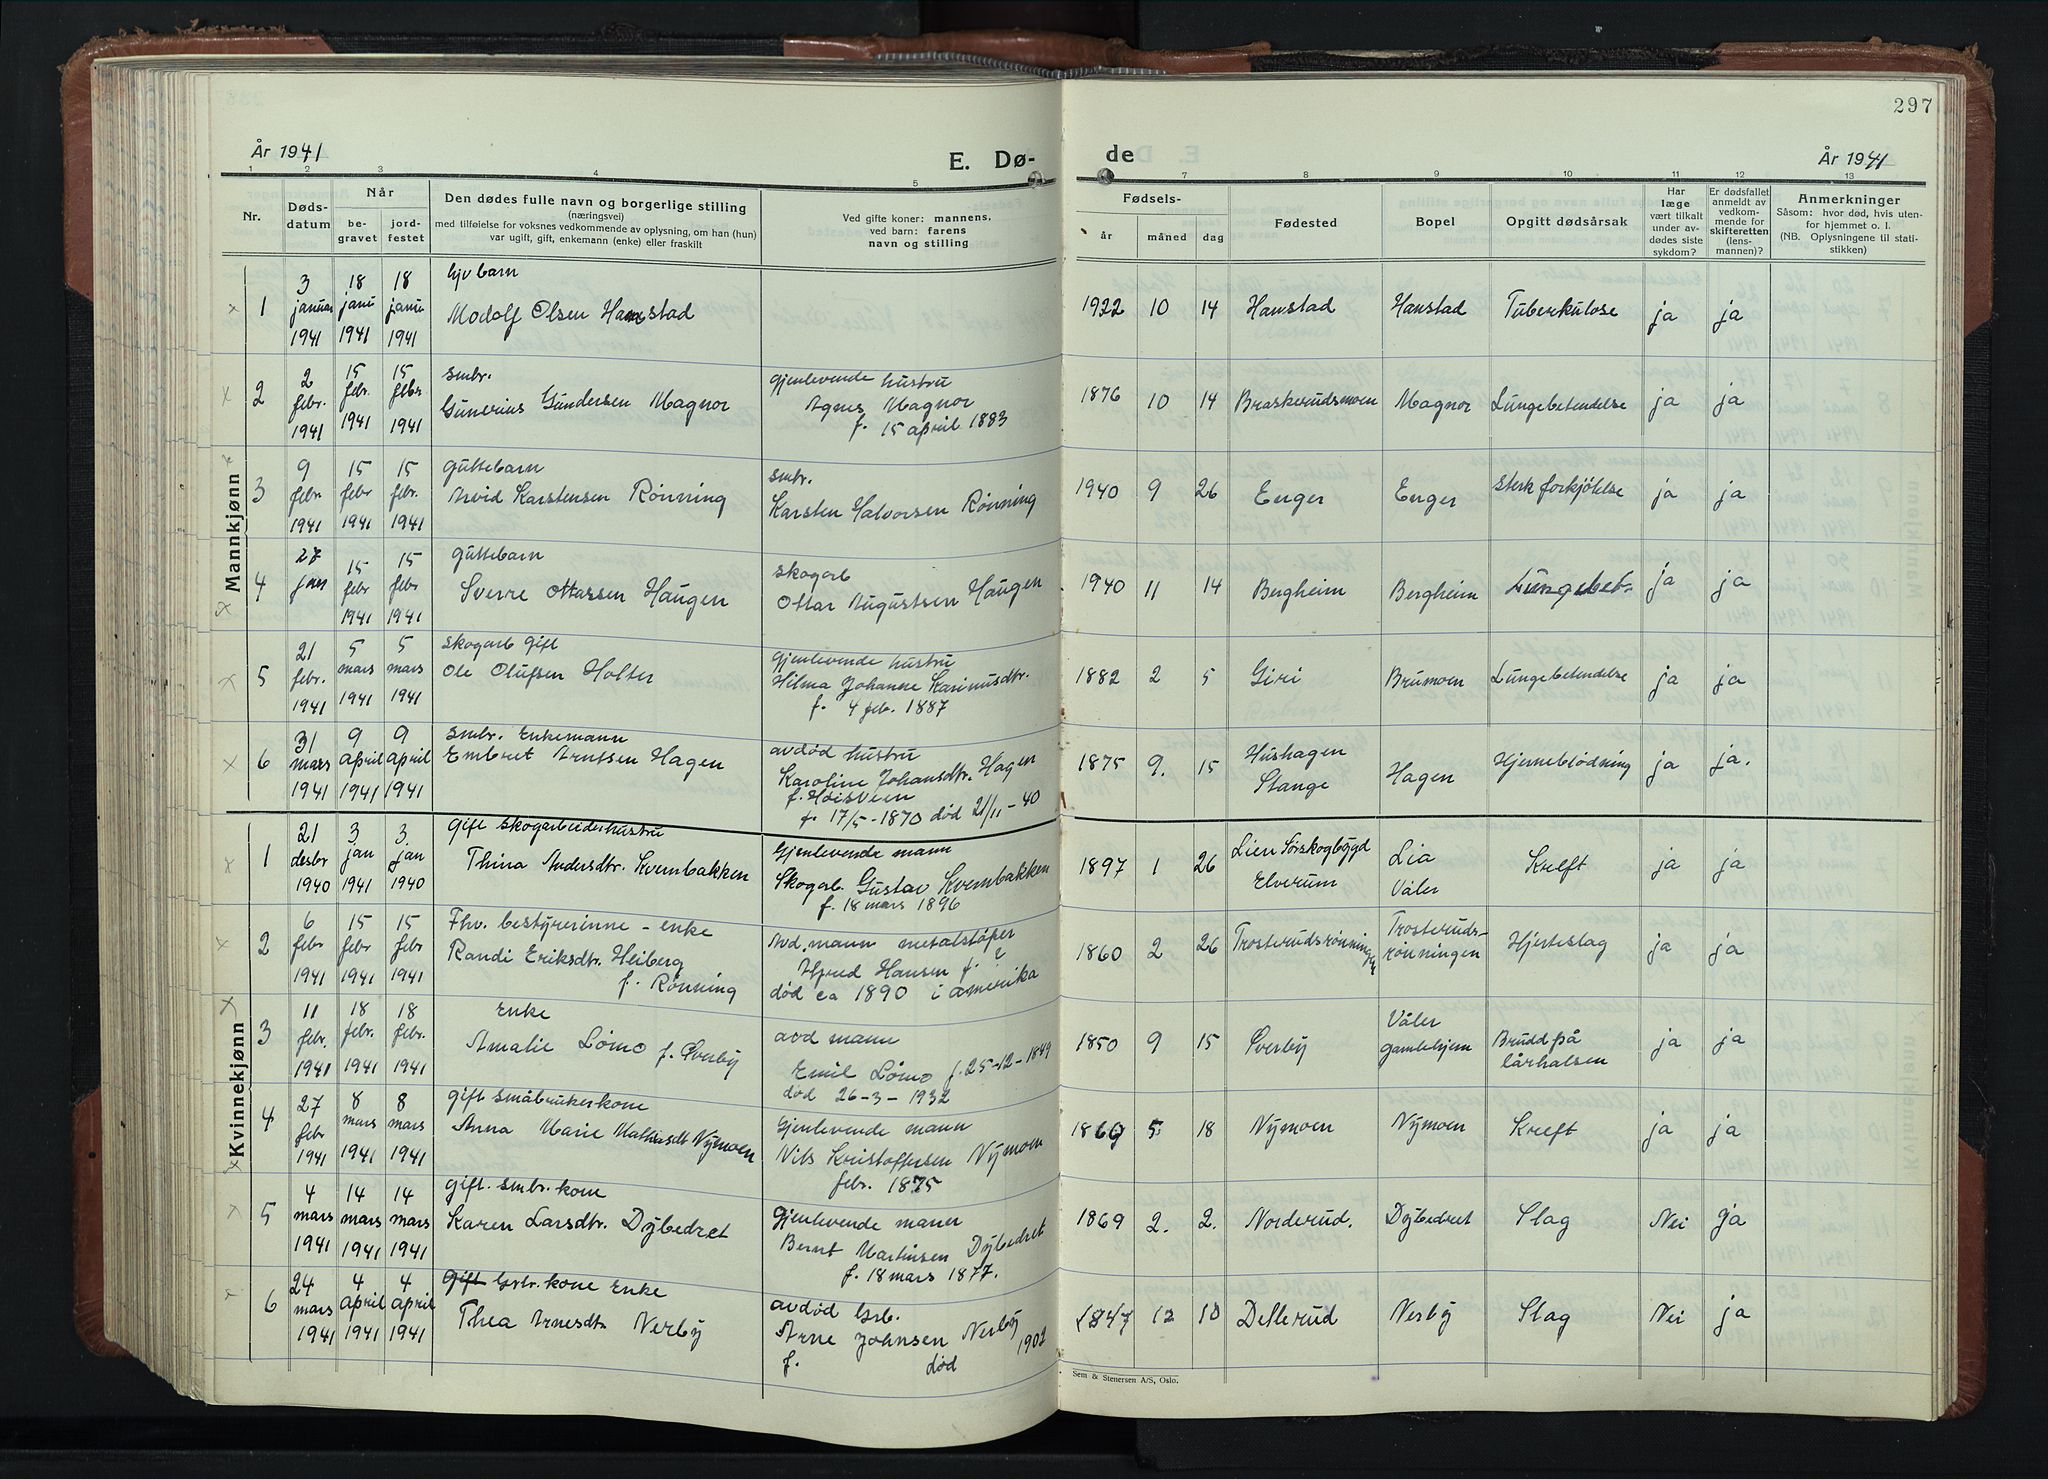 297
År 1941
E. Dø-
de
År 1941
1 2 3 4 5
7 8 9 10 11 12 13
Nr.
Døds-
datum
Når
be-
gravet
jord-
festet
Den dødes fulle navn og borgerlige stilling
(næringsvei)
med tilføielse for voksnes vedkommende av oplysning, om han (hun)
var ugift, gift, enkemann (enke) eller fraskilt
Ved gifte koner: mannens,
ved barn: farens
navn og stilling
Fødsels-
år måned dag
Fødested
Bopel
Opgitt dødsårsak
Har
læge
vært tilkalt
under av-
dødes siste
sykdom?
Er dødsfallet
anmeldt av
vedkom-
mende for
skifteretten
(lens-
mannen)?
Anmerkninger
Såsom: hvor død, hvis uten-
for hjemmet o. l.
(NB. Oplysningene til stati-
stikken)
Mannkjønn
1
3 januar 1941
18 janu 1941
18 janu 1941
Gjv barn
Modolf Olsen Hanstad
1922 10 14 Hanstad Hanstad Tuberkulose ja ja
2
2 febr. 1941
15 febr. 1941
15 febr 1941
smbr.
Gunerius Gundersen Magnor
gjenlevende hustru
Agnes Magnor
f. 15 april 1883
1876 10 14 Braskerudsmoen Magnor Lungebetendelse ja ja
3
9 febr 1941
15 febr 1941
15 febr. 1941
Guttebarn
Arvid Karstensen Rønning
smbr.
Karsten Halvorsen Rønning
1940 9 26 Enger Enger sterk forkjølelse ja ja
4
27 jan
15 febr 1941
15 febr. 1941
Guttebarn
Sverre Ottarsen Haugen
skogarb
Ottar Augustsen Haugen
1940 11 14 Bergheim Bergheim Lungebet. ja ja
5
21 febr. 1941
5 mars 1941
5 mars 1941
skogarb gift
Ole Olufsen Holter
Gjenlevende hustru
Hilma Johanne Karinusdtr.
f. 4 feb. 1887
1882 2 5 Giri Brumoen Lungebetendelse ja ja
6
31 mars 1941
9 april 1941
9 april 1941
smbr. Enkemann
Embret Arntsen Hagen
avdød hustru
Karoline Johansdtr. Hagen
f. Høisveen
f. 17/5-1870 død 21/11-40
1875 9. 15 Hushagen
Stange
Hagen Hjerneblødning ja ja.
Kvinnekjønn
1
21 desbr 1940
3 jan 1941
3. jan 1940
Gift skogarbeiderhustru
Thina Andersdtr. Kvernbakken
Gjenlevende mann
Skogarb. Gustav Kvernbakken
f. 18 mars 1896
1897 1 26 Lien Sørskogbygd
Elverum
Lia
Våler
Kreft ja ja
2
6 febr 1941
15 febr 1941
15 febr 1941
Fhv. bestyrerinne - enke
Randi Eriksdtr. Heiberg
f. Rønning
Avd. mann metalstøper
Alfred Hansen f. ?
død ca 1890 i amerika
1860 2 26 Trosterudsrønningen
Trosteruds-
rønningen
Hjerteslag ja ja
3
11 febr. 1941
18 febr. 1941
18 febr. 1941
Enke
Amalie Lømo f. Øverby
avd mann
Emil Lømo f. 25-12-1849
død 26-3-1932
1850 9 15 Øverby
Våler
gamlehjem
Brudd på
lårhalsen
ja ja
4
27 febr 1941
8 mars 1941
8 mars 1941
gift småbrukerkone
Anna Marie Mathisdt Nymoen
Gjenlevende mann
Nils Kristoffersen Nymoen
febr. 1875
1869 5. 18 Nymoen Nymoen Kreft ja ja
5
4 mars 1941
14 mars 1941
14 mars 1941
gift. smbr. kone
Karen Larsdtr. Dybedret
Gjenlevende mann
Bernt Martinsen Dybedret
f. 18 mars 1877.
1869 2. 2. Norderud. Dybedret Slag Nei ja
6
24 mars 1941
4 april 1941
4 april 1941
Gift Gbr. kone Enke
Thea Arnesdt. Nerby
avdød Grb.
Arne Johnsen Nerby
f. død 1902
1847 12 10 Detlerud Nerby Slag Nei ja
Sem & Stenersen A/S, Oslo.